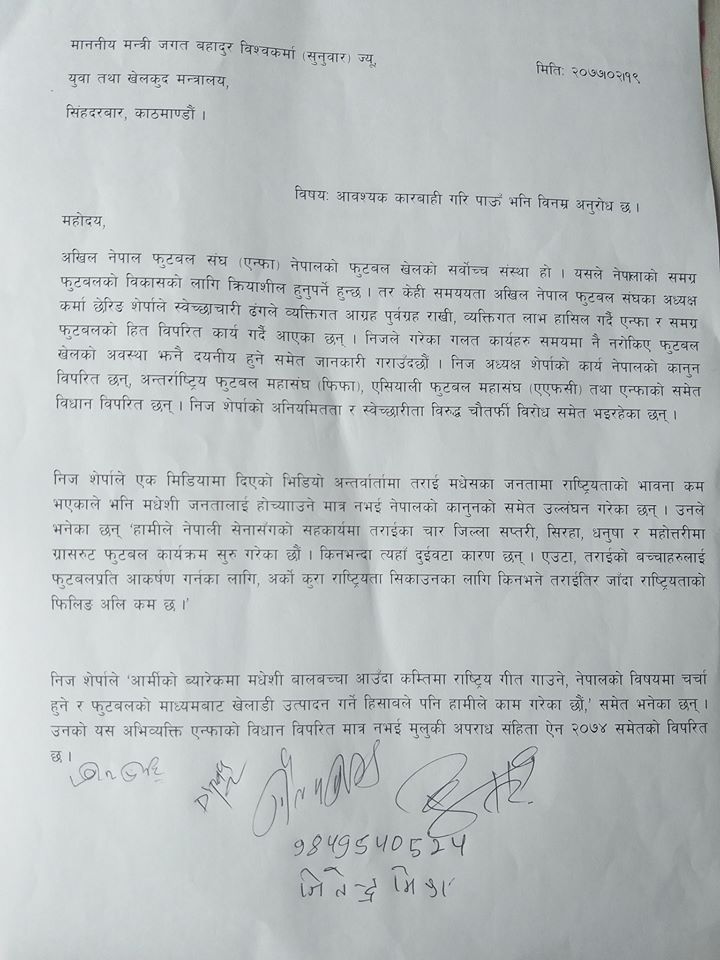 माननीय मन्त्री जगत बहादुर विश्वकर्मा (सुनुवार) ज्यू,
मिति: २०७७।०२।१९
युवा तथा खेलकुद मन्त्रालय,
सिंहदरवार, काठमाण्डौं ।
विषय: आवश्यक कारबाही गरि पाऊँ भनि विनम्र अनुरोध छ ।
महोदय,
अखिल नेपाल फुटबल संघ (एन्फा) नेपालको फुटबल खेलको सर्वोच्च संस्था हो । यसले नेपालाको समग्र
फुटबलको विकासको लागि क्रियाशील हुनुपर्ने हुन्छ । तर केही समययता अखिल नेपाल फुटबल संघका अध्यक्ष
कर्मा छेरिङ शेर्पाले स्वेच्छाचारी ढंगले व्यक्तिगत आग्रह पुर्वग्रह राखी, व्यक्तिगत लाभ हासिल गर्दै एन्फा र समग्र
फुटबलको हित विपरित कार्य गर्दै आएका छन् । निजले गरेका गलत कार्यहरु समयमा नै नरोकिए फुटबल
खेलको अवस्था झनै दयनीय हुने समेत जानकारी गराउँदछौं । निज अध्यक्ष शेर्पाको कार्य नेपालको कानुन
विपरित छन्, अन्तर्राष्ट्रिय फुटबल महासंघ (फिफा), एसियाली फुटबल महासंघ (एएफसी) तथा एन्फाको समेत
विधान विपरित छन् । निज शेर्पाको अनियमितता र स्वेच्छारीता विरुद्ध चौतर्फी विरोध समेत भइरहेका छन् ।
निज शेर्पाले एक मिडियामा दिएको भिडियो अन्तर्वार्तामा तराई मधेसका जनतामा राष्ट्रियताको भावना कम
भएकाले भनि मधेशी जनतालाई होच्यााउने मात्र नभई नेपालको कानुनको समेत उल्लंघन गरेका छन् । उनले
भनेका छन् 'हामीले नेपाली सेनासँगको सहकार्यमा तराईका चार जिल्ला सप्तरी, सिरहा, धनुषा र महोत्तरीमा
ग्रासरुट फुटबल कार्यक्रम सुरु गरेका छौं । किनभन्दा त्यहां दुईवटा कारण छन् । एउटा, तराईको बच्चाहरुलाई
फुटबलप्रति आकर्षण गर्नका लागि, अर्को कुरा राष्ट्रियता सिकाउनका लागि किनभने तराईतिर जाँदा राष्ट्रियताको
फिलिङ अलि कम छ ।'
निज शेर्पाले 'आर्मीको ब्यारेकमा मधेशी बालबच्चा आउँदा कम्तिमा राष्ट्रिय गीत गाउने, नेपालको विषयमा चर्चा
हुने र फुटबलको माध्यमबाट खेलाडी उत्पादन गर्ने हिसाबले पनि हामीले काम गरेका छौं,' समेत भनेका छन् ।
उनको यस अभिव्यक्ति एन्फाको विधान विपरित मात्र नभई मुलुकी अपराध संहिता ऐन २०७४ समेतको विपरित
छ ।
9849540524
जितेन्द्र मिश्र